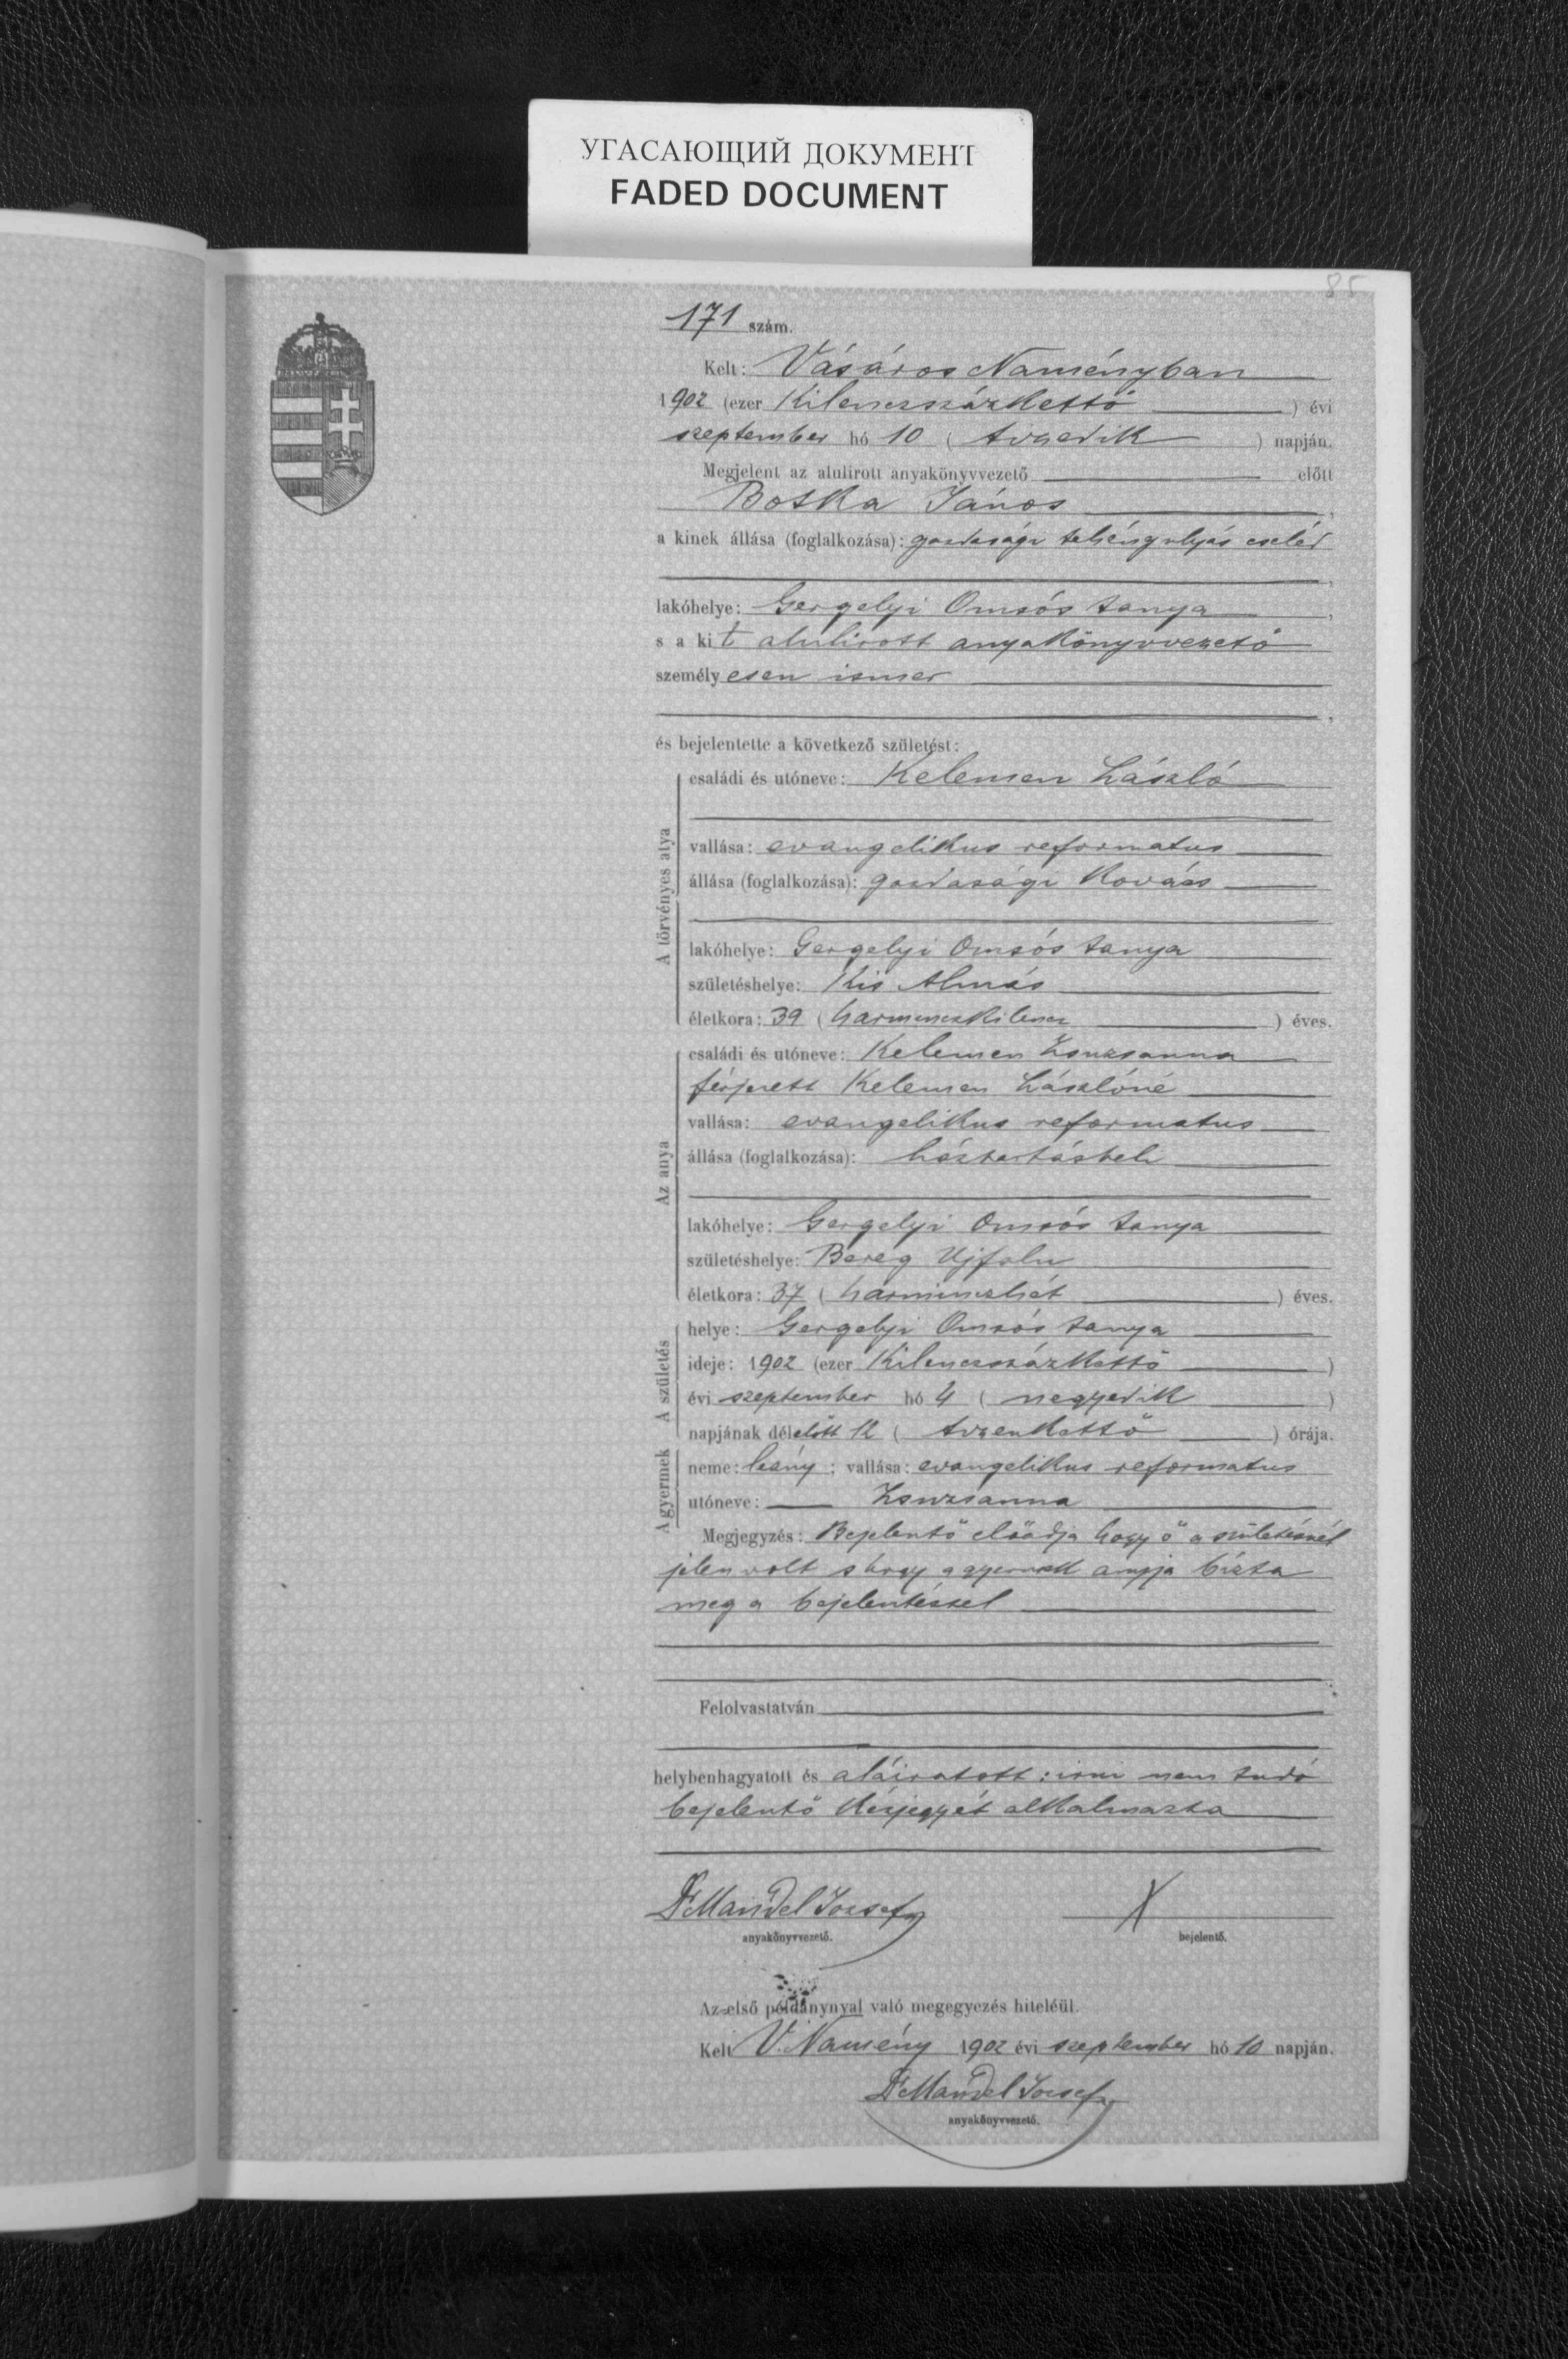 УГАСАЮЩИЙ ДОКУМЕНТ
FADED DOCUMENT
85
171 szám.
Kelt: Vásáros Naményban
1902 (ezer Kilenczszázkettő) évi
szeptember hó 10 (tizedik) napján.
Megjelent az alulirott anyakönyvvezető előtt
Botka János,
a kinek állása (foglalkozása): gazdasági tehéngulyás cseléd
,
lakóhelye: Gergelyi Omsós tanya,
s a kit alulirott anyakönyvvezető
személyesen ismer
,
és bejelentette a következő születést:
A törvényes atya
családi és utóneve: Kelemen László
vallása: evangelikus reformatus
állása (foglalkozása): gazdasági Kovács
lakóhelye: Gergelyi Omsós tanya
születéshelye: Kis Almás
életkora: 39 (harminczkilencz) éves.
Az anya
családi és utóneve: Kelemen Zsuzsanna
férjezett Kelemen Lászlóné
vallása: evangelikus reformatus
állása (foglalkozása): háztartásbeli
lakóhelye: Gergelyi Omsós tanya
születéshelye: Bereg Ujfalu
életkora: 37 (harminczhét) éves.
A születés
helye: Gergelyi Omsós tanya
ideje: 1902 (ezer Kilenczszázkettő)
évi szeptember hó 4 (negyedik)
napjának délelőtt 12 (tizenkettő) órája.
A gyermek
neme: leány; vallása: evangelikus reformatus
utóneve: Zsuzsanna
Megjegyzés: Bejelentő előadja hogy ő a születésnél
jelen volt s hogy a gyermek anyja bízta
meg a bejelentéssel
Felolvastatván
helybenhagyatott és aláiratott: irni nem tudó
bejelentő kézjegyét alkalmazta
Dr Mandel József X
anyakönyvvezető. bejelentő.
Az első példánynyal való megegyezés hiteléül.
Kelt V. Namény 1902 évi szeptember hó 10 napján.
Dr Mandel József
anyakönyvvezető.